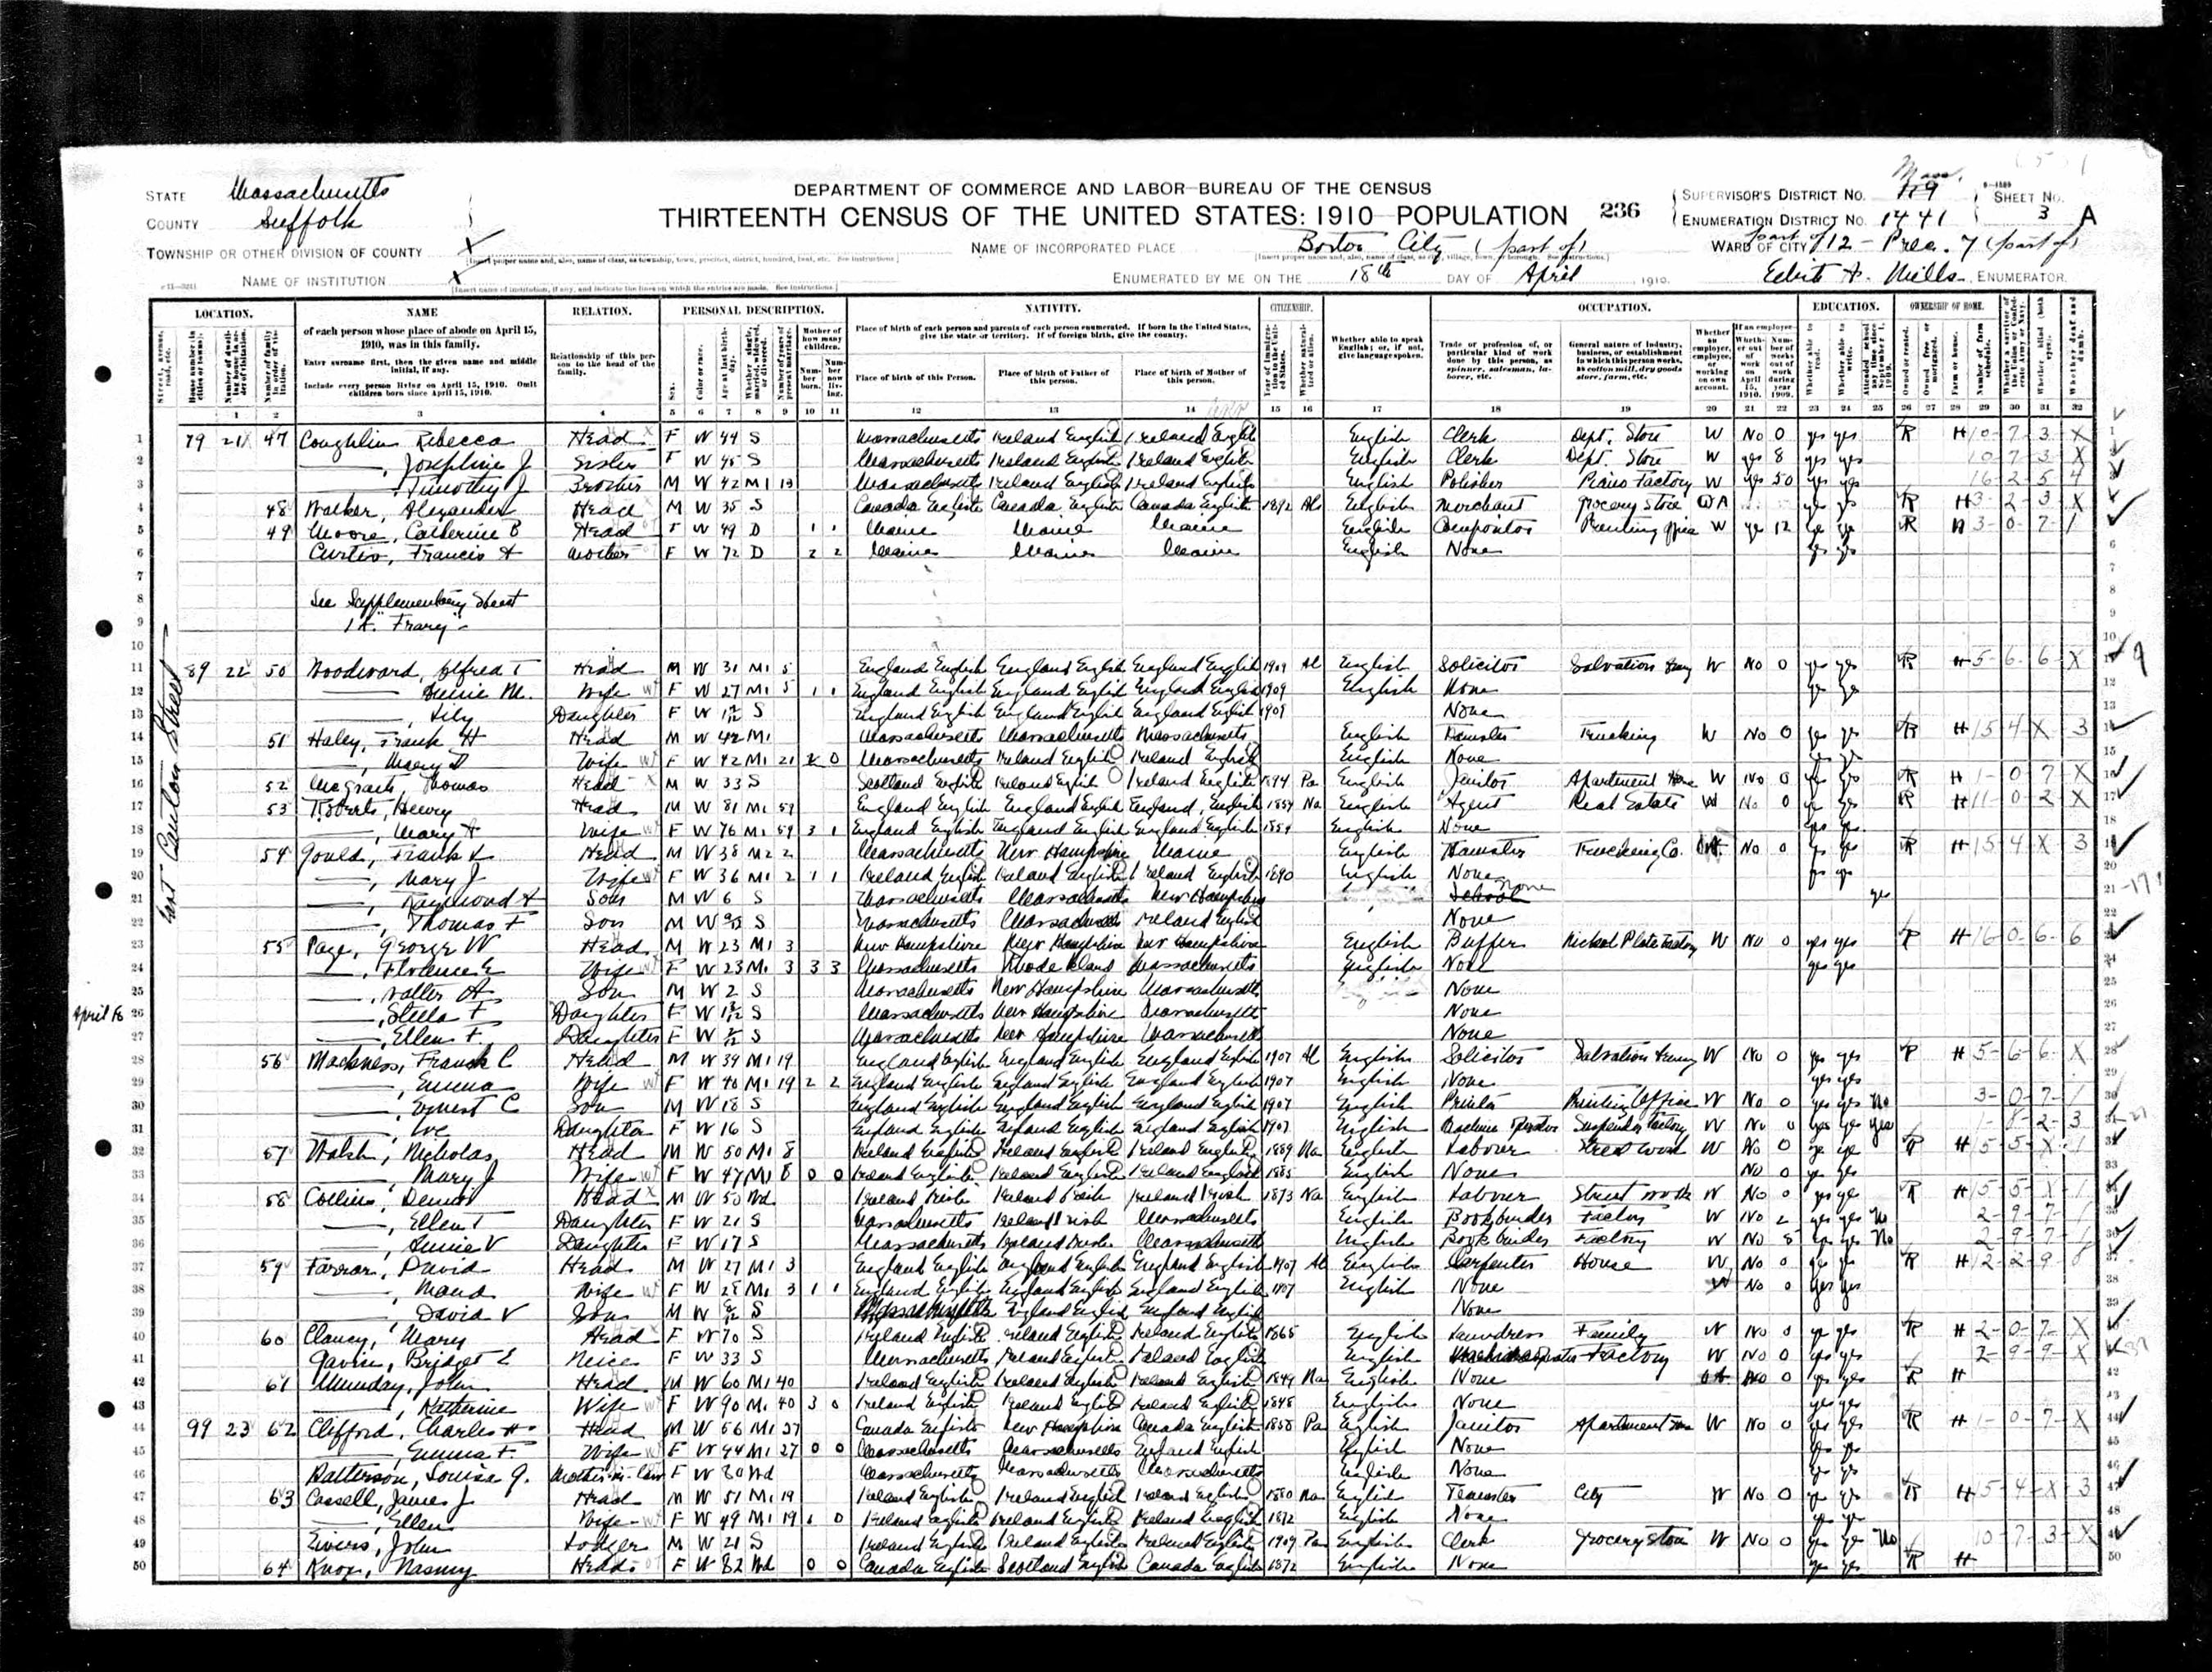 Mass.
STATE Massachusetts
COUNTY Suffolk
TOWNSHIP OR OTHER DIVISION OF COUNTY X
NAME OF INSTITUTION X
DEPARTMENT OF COMMERCE AND LABOR—BUREAU OF THE CENSUS
THIRTEENTH CENSUS OF THE UNITED STATES: 1910—POPULATION 236
NAME OF INCORPORATED PLACE Boston City (part of)
ENUMERATED BY ME ON THE 18th DAY OF April, 1910. Mills, ENUMERATOR.
SUPERVISOR'S DISTRICT NO. 119
ENUMERATION DISTRICT NO. 1441
SHEET NO. 3 A
WARD OF CITY part of 12 - Prec. 7 (part of)
LOCATION. NAME RELATION. PERSONAL DESCRIPTION. NATIVITY. CITIZENSHIP. OCCUPATION. EDUCATION. OWNERSHIP OF HOME.
of each person whose place of abode on April 15, 1910, was in this family.
Enter surname first, then the given name and middle initial, if any.
Include every person living on April 15, 1910. Omit children born since April 15, 1910.
Relationship of this person to the head of the family.
Place of birth of each person and parents of each person enumerated. If born in the United States, give the state or territory. If of foreign birth, give the country.
Place of birth of this Person. Place of birth of Father of this person. Place of birth of Mother of this person.
Whether able to speak English; or, if not, give language spoken.
Trade or profession of, or particular kind of work done by this person, as spinner, salesman, laborer, etc.
General nature of industry, business, or establishment in which this person works, as cotton mill, dry goods store, farm, etc.
1 2 3 4 5 6 7 8 9 10 11 12 13 14 15 16 17 18 19 20 21 22 23 24 25 26 27 28 29 30 31 32
East Canton Street
1 79 21 47 Coughlin Rebecca Head F W 44 S Massachusetts Ireland English Ireland English English Clerk Dept. Store W No 0 yes yes R H 10-7-3-X
2 ——, Josephine J Sister F W 45 S Massachusetts Ireland English Ireland English English Clerk Dept. Store W yes 8 yes yes 10-7-3-X
3 ——, Timothy J Brother M W 42 M1 13 Massachusetts Ireland English Ireland English English Polisher Piano Factory W yes 50 yes yes 16-2-5-4
4 48 Walker, Alexander Head M W 35 S Canada English Canada English Canada English 1892 Al English Merchant Grocery Store OA yes yes R H 3-2-3-X
5 49 Moore, Catherine B Head F W 49 D 1 1 Maine Maine Maine English Compositor Printing Office W yes 12 yes yes R H 3-0-7-1
6 Curtis, Francis A Mother F W 72 D 2 2 Maine Maine Maine English None yes yes
7
8 See Supplementary Sheet
9 1 A. Frary
10
11 89 22 50 Woodward, Alfred T Head M W 31 M1 5 England English England English England English 1909 Al English Solicitor Salvation Army W No 0 yes yes R H 5-6-6-X
12 —— Annie M. Wife F W 27 M1 5 1 1 England English England English England English 1909 English None yes yes
13 ——, Lily Daughter F W S England English England English England English 1909 None
14 51 Haley, Frank H Head M W 42 M1 Massachusetts Massachusetts Massachusetts English Teamster Trucking W No 0 yes yes R H 15-4-X-3
15 ——, Mary Wife F W 42 M1 21 0 Massachusetts Ireland English Ireland English English None yes yes
16 52 McGrath, Thomas Head M W 33 S Scotland English Ireland English Ireland English 1894 Pa English Janitor Apartment House W No 0 yes yes R H 1-0-7-X
17 53 Roberts, Henry Head M W 81 M1 59 England English England English England English 1854 Na English Agent Real Estate W No 0 yes yes R H 11-0-2-X
18 ——, Mary A Wife F W 76 M1 59 3 1 England English England English England English 1854 English None yes yes
19 54 Gould, Frank L Head M W 38 M2 2 Massachusetts New Hampshire Maine English Teamster Trucking Co. No 0 yes yes R H 15-4-X-3
20 ——, Mary J Wife F W 36 M1 2 1 1 Ireland English Ireland English Ireland English 1890 English None yes yes
21 ——, Raymond A Son M W 6 S Massachusetts Massachusetts New Hampshire School None yes
22 ——, Thomas F Son M W S Massachusetts Massachusetts Ireland English None
23 55 Page, George W Head M W 23 M1 3 New Hampshire New Hampshire New Hampshire English Buffer Nickel Plate Factory W No 0 yes yes R H 16-0-6-6
24 ——, Florence E Wife F W 23 M1 3 3 3 Massachusetts Rhode Island Massachusetts English None yes yes
25 ——, Walter A Son M W 2 S Massachusetts New Hampshire Massachusetts None
April 18 26 ——, Stella F Daughter F W S Massachusetts New Hampshire Massachusetts None
27 ——, Ellen F. Daughter F W S Massachusetts New Hampshire Massachusetts None
28 56 Mackness, Frank C Head M W 39 M1 19 England English England English England English 1907 Al English Solicitor Salvation Army W No 0 yes yes R H 5-6-6-X
29 ——, Emma Wife F W 40 M1 19 2 2 England English England English England English 1907 English None yes yes
30 ——, Ernest C Son M W 18 S England English England English England English 1907 English Printer Printing Office W No 0 yes yes No 3-0-7-1
31 ——, Ive Daughter F W 16 S England English England English England English 1907 English Machine Operator Suspender Factory W No 0 yes yes yes
32 57 Walsh, Nicholas Head M W 50 M1 8 Ireland English Ireland English Ireland English 1889 Na English Labour Street Work W No 0 yes yes R H 15-5-X-1
33 ——, Mary J Wife F W 47 M1 8 0 0 Ireland English Ireland English Ireland English 1885 English None No 0 yes yes
34 58 Collins, Dennis Head M W 50 Wd Ireland Irish Ireland Irish Ireland Irish 1873 Na English Labour Street Work W No 0 yes yes R H 15-5-X-1
35 ——, Ellen T Daughter F W 21 S Massachusetts Ireland Irish Massachusetts English Bookbinder Factory W No 2 yes yes No 2-9-7-1
36 ——, Annie V Daughter F W 17 S Massachusetts Ireland Irish Massachusetts English Bookbinder Factory W No yes yes No 2-9-7-1
37 59 Farrar, David Head M W 27 M1 3 England English England English England English 1907 Al English Carpenter House W No 0 yes yes R H 12-2-9-8
38 ——, Maud Wife F W 28 M1 3 1 1 England English England English England English 1907 English None W No 0 yes yes
39 David V Son M W S Massachusetts England English England English None
40 60 Clancy, Mary Head F W 70 S Ireland English Ireland English Ireland English 1865 English Laundress Family W No 0 yes yes R H 2-0-7-X
41 Gavin, Bridget E Neice F W 33 S Massachusetts Ireland English Ireland English English Factory W No 0 yes yes 2-9-9-X
42 61 Munday, John Head M W 60 M1 40 Ireland English Ireland English Ireland English 1849 Na English None No 0 yes yes R H
43 ——, Katherine Wife F W 90 M1 40 3 0 Ireland English Ireland English Ireland English 1848 English None yes yes
44 99 23 62 Clifford, Charles H Head M W 56 M1 27 Canada English New Hampshire Canada English 1858 Pa English Janitor Apartment House W No 0 yes yes R H 1-0-7-X
45 ——, Emma F. Wife F W 44 M1 27 0 0 Massachusetts Massachusetts England English English None yes yes
46 Patterson, Louisa G. Mother-in-law F W 80 Wd Massachusetts Massachusetts Massachusetts English None yes yes
47 63 Cassell, James J Head M W 51 M1 19 Ireland English Ireland English Ireland English 1880 Na English Teamster City W No 0 yes yes R H 15-4-X-3
48 ——, Ellen Wife F W 49 M1 19 1 0 Ireland English Ireland English Ireland English 1872 English None yes yes
49 John Lodger M W 21 S Ireland English Ireland English Ireland English 1909 Pa English Clerk Grocery Store W No 0 yes yes No 10-7-3-X
50 64 Knox, Head F W 82 Wd 0 0 Canada English Scotland English Canada English 1872 English None yes yes R H